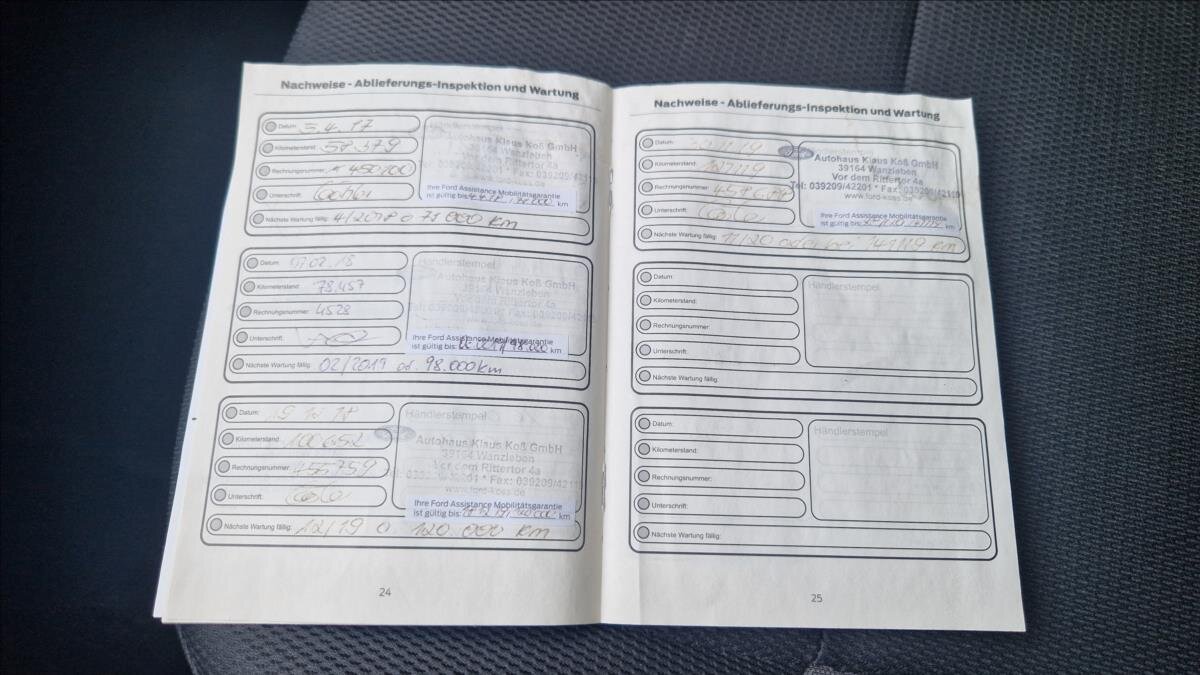 Nachweise - Ablieferungs-Inspektion und Wartung
Datum: 5.4.17
Kilometerstand: 58.379
Rechnungsnummer:
Unterschrift:
Nächste Wartung fällig: 4/2018 o 78 000 km
Autohaus Klaus Koß GmbH
39164 Wanzleben
Vor dem Rittertor 4a
Tel: 039209/42201 * Fax: 039209/4211
www.ford-koss.de
Ihre Ford Assistance Mobilitätsgarantie
ist gültig bis: km
Datum: 07.02.18
Kilometerstand: 78.457
Rechnungsnummer: 4528
Unterschrift:
Nächste Wartung fällig: 02/2019 od. 98.000 km
Händlerstempel
Autohaus Klaus Koß GmbH
39164 Wanzleben
Vor dem Rittertor 4a
Ihre Ford Assistance Mobilitätsgarantie
ist gültig bis: 98.000 km
Datum:
Kilometerstand: 100652
Rechnungsnummer: 455759
Unterschrift:
Nächste Wartung fällig: 12/19 o 120.000 km
Händlerstempel
Autohaus Klaus Koß GmbH
39164 Wanzleben
Vor dem Rittertor 4a
Fax: 039209/4211
www.ford-koss.de
Ihre Ford Assistance Mobilitätsgarantie
ist gültig bis: km
24
Nachweise - Ablieferungs-Inspektion und Wartung
Datum:
Kilometerstand:
Rechnungsnummer:
Unterschrift:
Nächste Wartung fällig: 11/20 oder bei 141119 km
Händlerstempel
Autohaus Klaus Koß GmbH
39164 Wanzleben
Vor dem Rittertor 4a
Tel: 039209/42201 * Fax: 039209/42119
www.ford-koss.de
Ihre Ford Assistance Mobilitätsgarantie
ist gültig bis: km
Datum:
Kilometerstand:
Rechnungsnummer:
Unterschrift:
Nächste Wartung fällig:
Händlerstempel
Datum:
Kilometerstand:
Rechnungsnummer:
Unterschrift:
Nächste Wartung fällig:
Händlerstempel
25